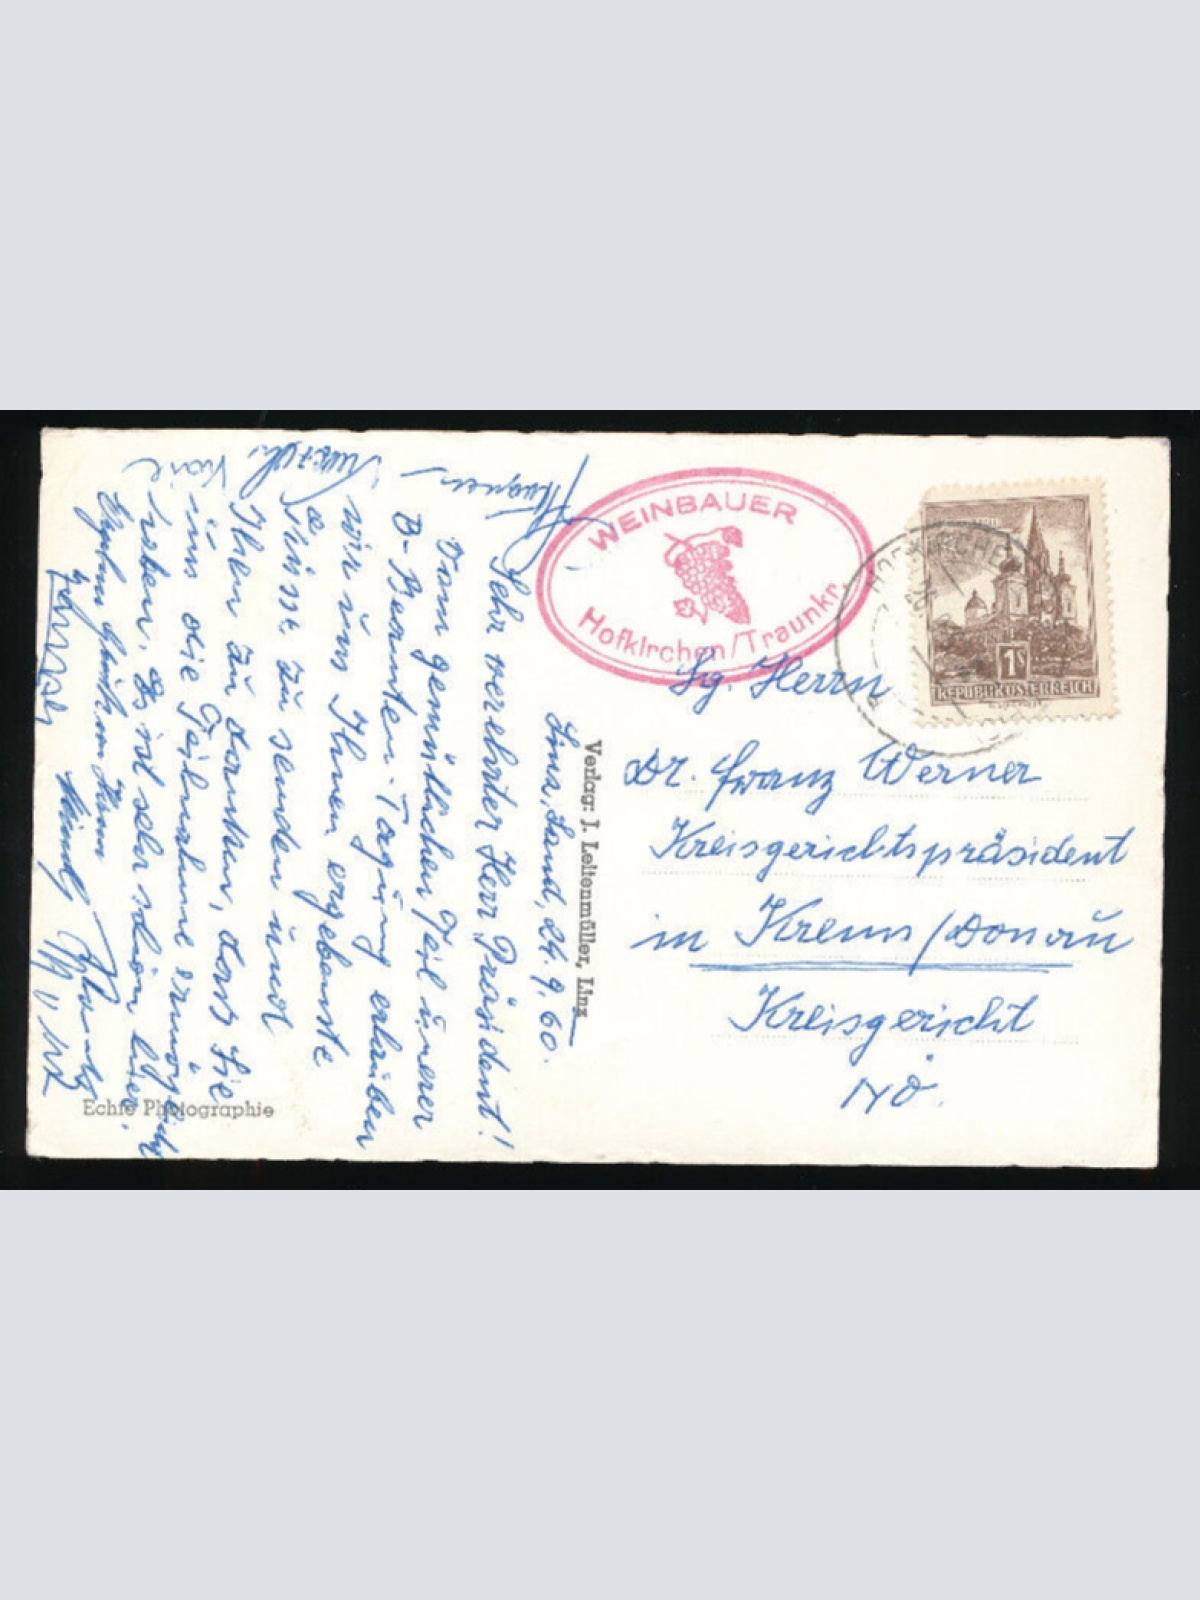 Linz, Land, 24. 9. 60.
Sehr verehrter Herr Präsident!
Vom gemütlichen Teil unserer
B-Beamten-Tagung erlauben
wir uns Ihnen ergebenste
Grüsse zu senden und
Ihnen zu danken, dass Sie
uns die Teilnahme ermöglicht
haben. Es ist sehr schön hier.
Verlag: J. Leitenmüller, Linz
Echte Photographie
WEINBAUER
Hofkirchen/Traunkr.
HOFKIRCHEN
1S
REPUBLIK ÖSTERREICH
Sg. Herrn
Dr. Franz Werner
Kreisgerichtspräsident
in Krems/Donau
Kreisgericht
NÖ.